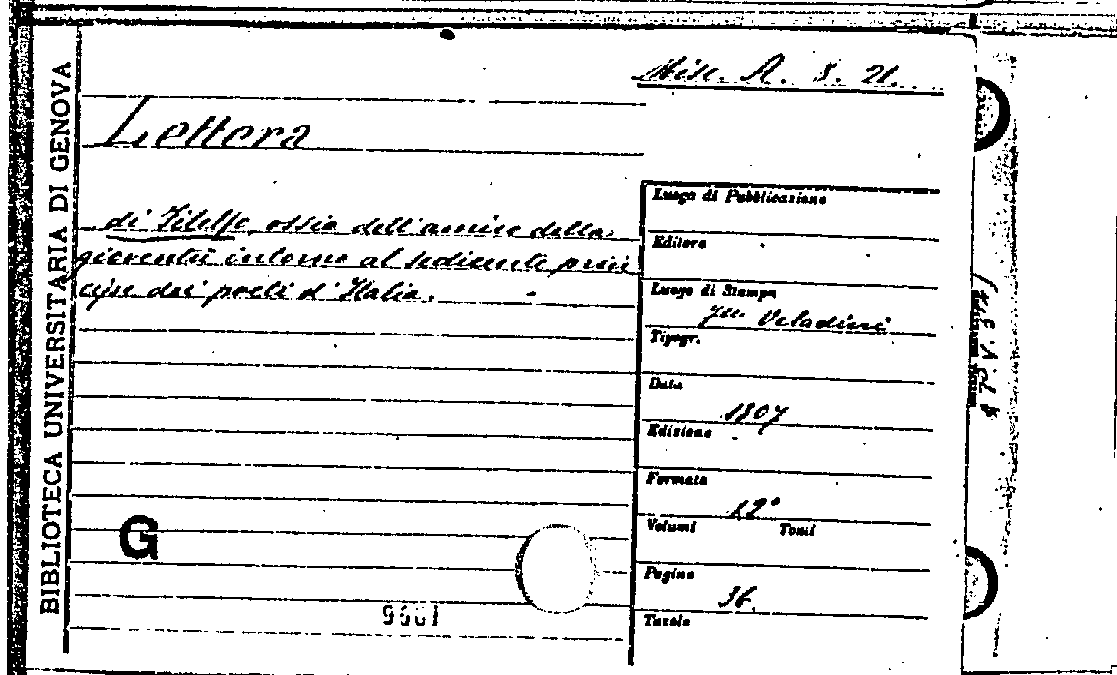 BIBLIOTECA UNIVERSITARIA DI GENOVA
Misc. A. 8. 21.
Lettera
di ossia dell'amico della
gioventù intorno al sedicente prin
cipe dei poeti d'Italia.
Luogo di Pubblicazione
Editore
Luogo di Stampa
Tipogr. Veladini
Data
1807
Edizione
Formato
12°
Volumi Tomi
Pagine
36.
Tavole
G
9601